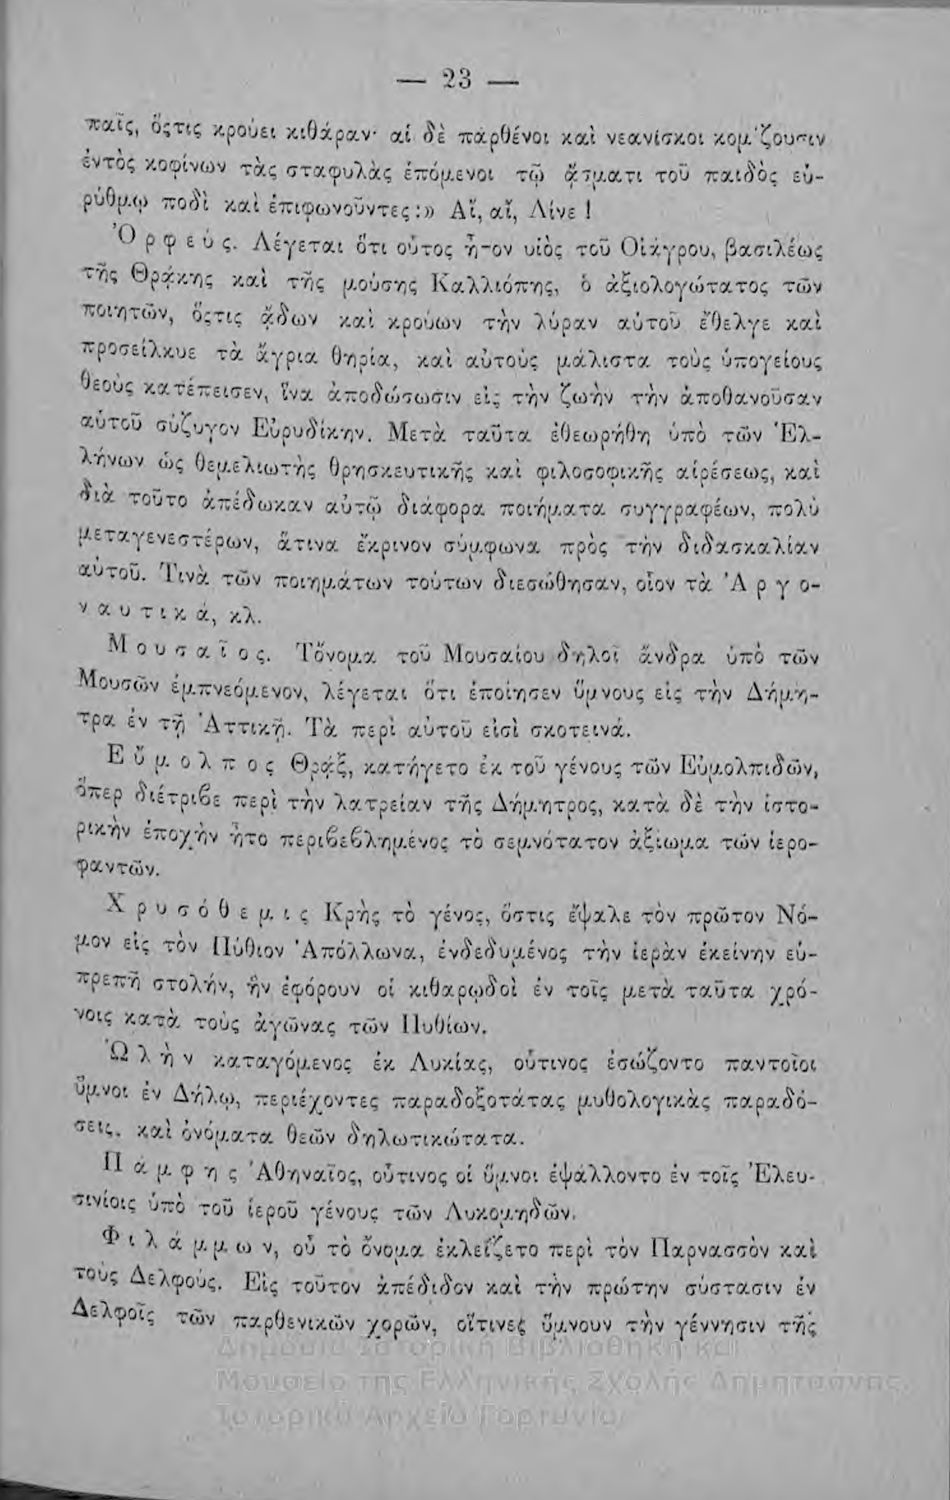 — 23 —
παῖς, ὅςτις κρούει κιθάραν· αἱ δὲ παρθένοι καὶ νεανίσκοι κομίζουσιν
ἐντὸς κοφίνων τὰς σταφυλὰς ἑπόμενοι τῷ ᾄσματι τοῦ παιδὸς εὐ-
ρύθμῳ ποδὶ καὶ ἐπιφωνοῦντες:» Αἴ, αἴ, Λίνε !
Ὀρφεύς. Λέγεται ὅτι οὗτος ἦτον υἱὸς τοῦ Οἰάγρου, βασιλέως
τῆς Θρᾴκης καὶ τῆς μούσης Καλλιόπης, ὁ ἀξιολογώτατος τῶν
ποιητῶν, ὅςτις ᾄδων καὶ κρούων τὴν λύραν αὐτοῦ ἔθελγε καὶ
προσείλκυε τὰ ἄγρια θηρία, καὶ αὐτοὺς μάλιστα τοὺς ὑπογείους
θεοὺς κατέπεισεν, ἵνα ἀποδώσωσιν εἰς τὴν ζωὴν τὴν ἀποθανοῦσαν
αὐτοῦ σύζυγον Εὐρυδίκην. Μετὰ ταῦτα ἐθεωρήθη ὑπὸ τῶν Ἑλ-
λήνων ὡς θεμελιωτὴς θρησκευτικῆς καὶ φιλοσοφικῆς αἱρέσεως, καὶ
διὰ τοῦτο ἀπέδωκαν αὐτῷ διάφορα ποιήματα συγγραφέων, πολὺ
μεταγενεστέρων, ἅτινα ἔκρινον σύμφωνα πρὸς τὴν διδασκαλίαν
αὐτοῦ. Τινὰ τῶν ποιημάτων τούτων διεσώθησαν, οἷον τὰ Ἀργο-
ναυτικά, κλ.
Μουσαῖος. Τὄνομα τοῦ Μουσαίου δηλοῖ ἄνδρα ὑπὸ τῶν
Μουσῶν ἐμπνεόμενον, λέγεται ὅτι ἐποίησεν ὕμνους εἰς τὴν Δήμη-
τρα ἐν τῇ Ἀττικῇ. Τὰ περὶ αὐτοῦ εἰσὶ σκοτεινά.
Εὔμολπος Θρᾷξ, κατήγετο ἐκ τοῦ γένους τῶν Εὐμολπιδῶν,
ὅπερ διέτριβε περὶ τὴν λατρείαν τῆς Δήμητρος, κατὰ δὲ τὴν ἱστο-
ρικὴν ἐποχὴν ἦτο περιβεβλημένος τὸ σεμνότατον ἀξίωμα τῶν ἱερο-
φαντῶν.
Χρυσόθεμις Κρὴς τὸ γένος, ὅστις ἔψαλε τὸν πρῶτον Νό-
μον εἰς τὸν Πύθιον Ἀπόλλωνα, ἐνδεδυμένος τὴν ἱερὰν ἐκείνην εὐ-
πρεπῆ στολήν, ἣν ἐφόρουν οἱ κιθαρῳδοὶ ἐν τοῖς μετὰ ταῦτα χρό-
νοις κατὰ τοὺς ἀγῶνας τῶν Πυθίων.
Ὠλὴν καταγόμενος ἐκ Λυκίας, οὗτινος ἐσώζοντο παντοῖοι
ὕμνοι ἐν Δήλῳ, περιέχοντες παραδοξοτάτας μυθολογικὰς παραδό-
σεις, καὶ ὀνόματα θεῶν δηλωτικώτατα.
Πάμφης Ἀθηναῖος, οὗτινος οἱ ὕμνοι ἐψάλλοντο ἐν τοῖς Ἐλευ-
σινίοις ὑπὸ τοῦ ἱεροῦ γένους τῶν Λυκομηδῶν.
Φιλάμμων, οὗ τὸ ὄνομα ἐκλεΐζετο περὶ τὸν Παρνασσὸν καὶ
τοὺς Δελφούς. Εἰς τοῦτον ἀπέδιδον καὶ τὴν πρώτην σύστασιν ἐν
Δελφοῖς τῶν παρθενικῶν χορῶν, οἵτινες ὕμνουν τὴν γέννησιν τῆς
Δημόσια Ιστορική Βιβλιοθήκη και
Μουσείο της Ελληνικής Σχολής Δημητσάνας,
Ιστορικό Αρχείο Γορτυνίας